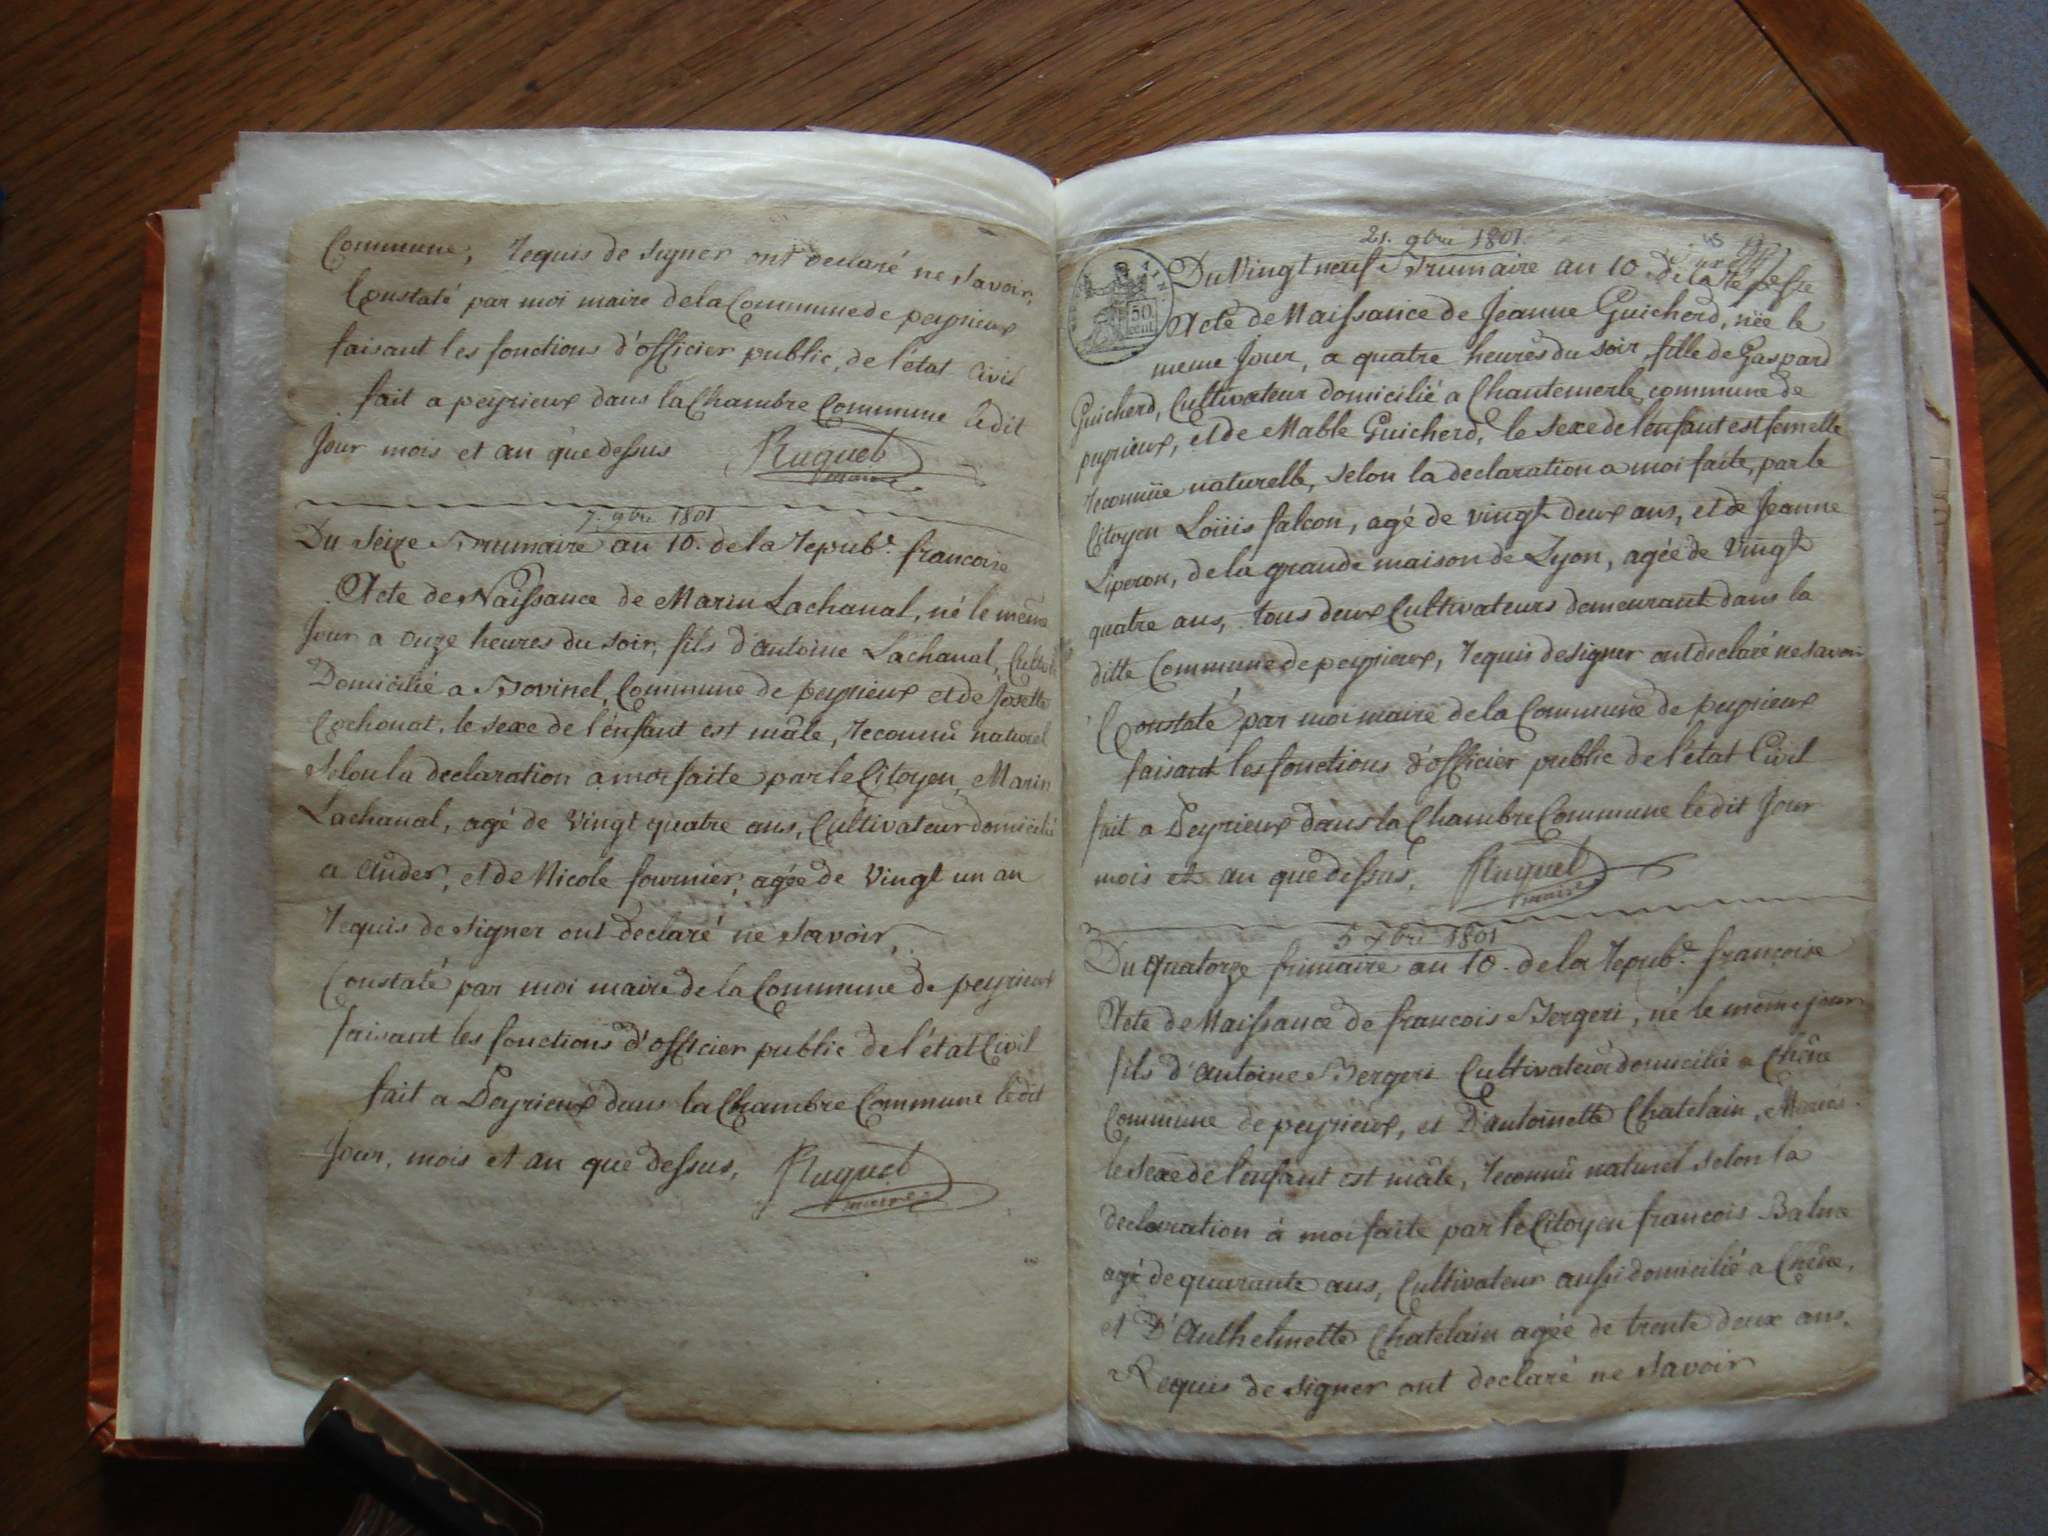 Commune, requis de signer ont declaré ne savoir,
Constaté par moi maire de la Commune de peyrieux
faisant les fonctions d'officier public, de l'état civil
fait a peyrieux dans la Chambre Commune ledit
Jour mois et an que dessus Ruquet
maire
7. 9bre 1801
Du Seize Brumaire an 10. de la repub.e francoise
Acte de Naissance de Marin Lachanal, né le même
Jour a onze heures du soir, fils d'antoine Lachanal, Cultiv
Domicilié a Bovinel, Commune de peyrieux et de Josette
Cochonat, le sexe de l'énfant est mâle, reconnû naturel
selon la declaration a moi faite par le Citoyen, Marin
Lachanal, agé de Vingt quatre ans, Cultivateur domicilié
a Ander, et de Nicole fournier, agée de Vingt un an
requis de signer ont declaré ne savoir,
Constaté par moi maire de la Commune de peyrieux
faisant les fonctions d'officier public de l'état Civil
fait a Peyrieux dans la Chambre Commune ledit
Jour, mois et an que dessus, Ruquet
maire
21. 9bre 1801.
45
Du Vingt neuf Brumaire an 10 de la
50
cent
Acte de Naissance de Jeanne Guicherd, née le
meme Jour, a quatre heures du soir fille de Gaspard
Guicherd, Cultivateur domicilié a Chantemerle, commune de
peyrieux, et de Mable Guicherd, le sexe de l'enfant est femelle
reconnüe naturelle, selon la declaration a moi faite, par le
Citoyen Loüis falcon, agé de vingt deux ans, et de Jeanne
Liperon, de la grande maison de Lyon, agée de Vingt
quatre ans, tous deux Cultivateurs demeurant dans la
ditte Commune de peyrieux, requis de signer ont declaré ne savoir
Constaté par moi maire de la Commune de peyrieux
faisant les fonctions d'officier public de l'état Civil
fait a Peyrieux dans la Chambre Commune ledit Jour
mois et an que dessus, Ruquet
maire
5 Xbre 1801
Du quatorze frimaire an 10. de la repub.e françoise
Acte de Naissance de francois Bergeri, né le même jour
fils d'antoine Bergeri Cultivateur domicilié a Chêne
Commune de peyrieux, et D'antoinette Chatelain, Mariés
le sexe de l'enfant est mâle, reconnû naturel selon la
declaration à moi faite par le Citoyen francois Balme
agé de quarante ans, Cultivateur aussi domicilié a Chêne,
et D'Anthelmette Chatelain agée de trente deux ans.
Requis de signer ont declaré ne savoir